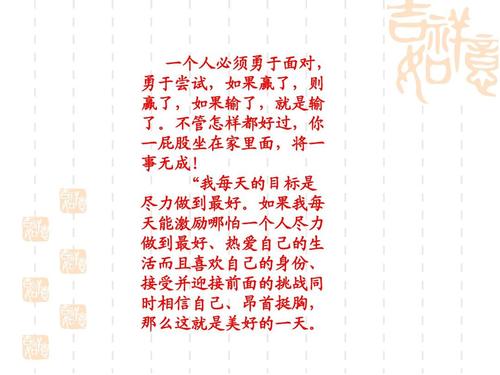 吉祥
如意
一个人必须勇于面对，
勇于尝试，如果赢了，则
赢了，如果输了，就是输
了。不管怎样都好过，你
一屁股坐在家里面，将一
事无成！
“我每天的目标是
尽力做到最好。如果我每
天能激励哪怕一个人尽力
做到最好、热爱自己的生
活而且喜欢自己的身份、
接受并迎接前面的挑战同
时相信自己、昂首挺胸，
那么这就是美好的一天。